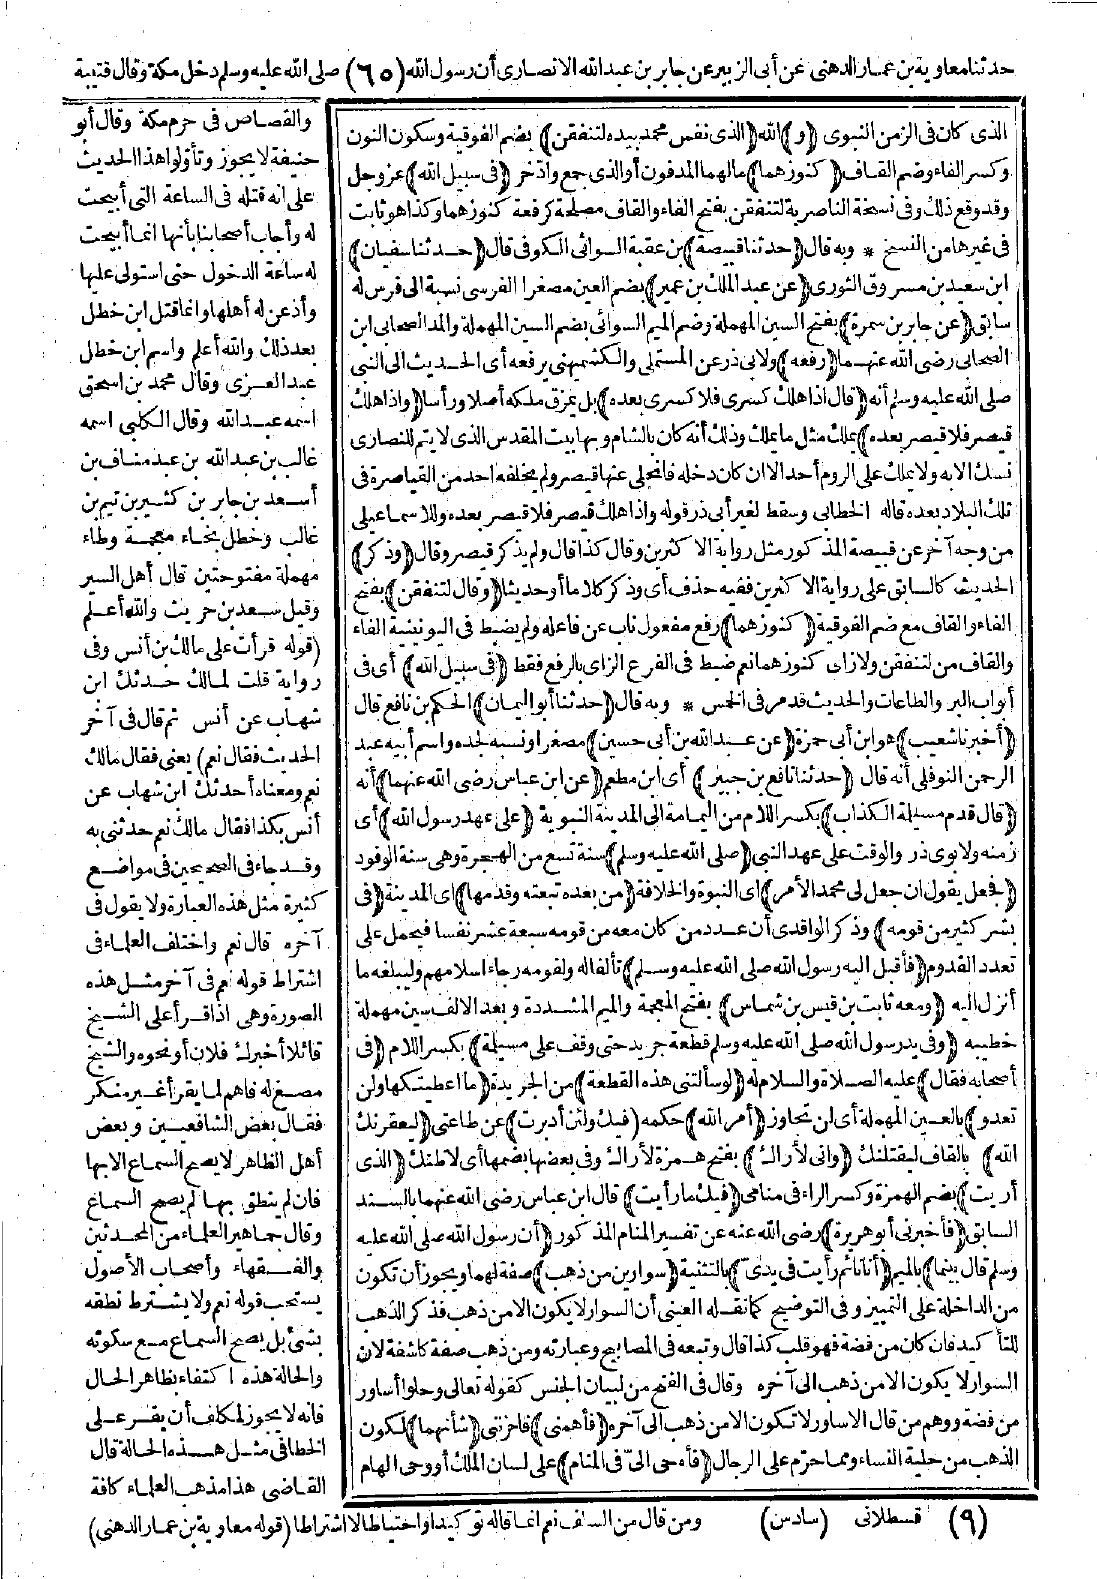 حدثنا معاوية بن عمار الدهنى عن أبى الزبير عن جابر بن عبد الله الانصارى أن رسول الله (٦٥) صلى الله عليه وسلم دخل مكة وقال قتيبة
الذى كان فى الزمن النبوى ﴿و﴾ الله ﴿الذى نفس محمد بيده لتنفقن﴾ بضم الفوقية وسكون النون
وكسر الفاء وضم القاف ﴿كنوزهما﴾ مالهما المدفون أو الذى جمع وادّخر ﴿فى سبيل الله﴾ عز وجل
وقد وقع ذلك وفى نسخة الناصرية لتنفقن بفتح الفاء والقاف مصلحة كرفعة كنوزهما وكذا هو ثابت
فى غيرها من النسخ * وبه قال ﴿حدثنا قبيصة﴾ بن عقبة السوائى الكوفى قال ﴿حدثنا سفيان﴾
ابن سعيد بن مسروق الثورى ﴿عن عبد الملك بن عمير﴾ بضم العين مصغرا الفرسى نسبة الى فرس له
سابق ﴿عن جابر بن سمرة﴾ بفتح السين المهملة وضم الميم السوائى بضم السين المهملة والمد الصحابى ابن
الصحابى رضى الله عنهما ﴿رفعه﴾ ولابى ذر عن المستملى والكشميهنى يرفعه أى الحديث الى النبى
صلى الله عليه وسلم أنه ﴿قال اذا هلك كسرى فلا كسرى بعده﴾ بل يمزق ملكه أصلا ورأسا ﴿واذا هلك
قيصر فلا قيصر بعده﴾ يملك مثل ما يملك وذلك أنه كان بالشام وبها بيت المقدس الذى لا يتم للنصارى
نسك الا به ولا يملك على الروم أحد الا ان كان دخله فانجلى عنها قيصر ولم يخلفه احد من القياصرة فى
تلك البلاد بعده قاله الخطابى وسقط لغير أبى ذر قوله واذا هلك قيصر فلا قيصر بعده وللاسماعيلى
من وجه آخر عن قبيصة المذكور مثل رواية الاكثرين وقال كذا قال ولم يذكر قيصر وقال ﴿وذكر﴾
الحديث كالسابق على رواية الاكثرين ففيه حذف أى وذكر كلاما أو حديثا ﴿وقال لتنفقن﴾ بفتح
الفاء والقاف مع ضم الفوقية ﴿كنوزهما﴾ رفع مفعول ناب عن فاعله ولم يضبط فى اليونينية الفاء
والقاف من لتنفقن ولا زاى كنوزهما نم ضبط فى الفرع الزاى بالرفع فقط ﴿فى سبيل الله﴾ أى فى
أبواب البر والطاعات والحديث قد مر فى الخمس * وبه قال ﴿حدثنا أبو اليمان﴾ الحكم بن نافع قال
﴿أخبرنا شعيب﴾ هو ابن أبى حمزة ﴿عن عبد الله بن أبى حسين﴾ مصغرا ونسبه لجده واسم أبيه عبد
الرحمن النوفلى أنه قال ﴿حدثنا نافع بن جبير﴾ أى ابن مطعم ﴿عن ابن عباس رضى الله عنهما﴾ أنه
﴿قال قدم مسيلمة الكذاب﴾ بكسر اللام من اليمامة الى المدينة النبوية ﴿على عهد رسول الله﴾ أى
زمنه ولابوى ذر والوقت على عهد النبى ﴿صلى الله عليه وسلم﴾ سنة تسع من الهجرة وهى سنة الوفود
﴿فجعل يقول ان جعل لى محمد الأمر﴾ اى النبوة والخلافة ﴿من بعده تبعته وقدمها﴾ اى المدينة ﴿فى
بشر كثير من قومه﴾ وذكر الواقدى أن عدد من كان معه من قومه سبعة عشر نفسا فيحمل على
تعدد القدوم ﴿فأقبل اليه رسول الله صلى الله عليه وسلم﴾ تألفا له ولقومه رجاء اسلامهم وليبلغه ما
أنزل اليه ﴿ومعه ثابت بن قيس بن شماس﴾ بفتح المعجمة والميم المشددة وبعد الالف سين مهملة
خطيبه ﴿وفى يد رسول الله صلى الله عليه وسلم قطعة جريد حتى وقف على مسيلمة﴾ بكسر اللام ﴿فى
أصحابه فقال﴾ عليه الصلاة والسلام له ﴿لو سألتنى هذه القطعة﴾ من الجريدة ﴿ما اعطيتكها ولن
تعدو﴾ بالعين المهملة أى لن تجاوز ﴿أمر الله﴾ حكمه ﴿فيك ولئن أدبرت﴾ عن طاعتى ﴿ليعقرنك
الله﴾ بالقاف ليقتلنك ﴿وانى لأراك﴾ بفتح همزة لأراك وفى بعضها بضمها أى لاظنك ﴿الذى
أريت﴾ بضم الهمزة وكسر الراء فى منامى ﴿فيك ما رأيت﴾ قال ابن عباس رضى الله عنهما بالسند
السابق ﴿فأخبرنى أبو هريرة﴾ رضى الله عنه عن تفسير المنام المذكور ﴿أن رسول الله صلى الله عليه
وسلم قال بينما﴾ بالميم ﴿أنا نائم رأيت فى يدىّ﴾ بالتثنية ﴿سوارين من ذهب﴾ صفة لهما ويجوز أن تكون
من الداخلة على التمييز وفى التوضيح كما نقله العينى أن السوار لا يكون الا من ذهب فذكر الذهب
للتأكيد فان كان من فضة فهو قلب كذا قال وتبعه فى المصابيح وعبارته ومن ذهب صفة كاشفة لان
السوار لا يكون الا من ذهب الى آخره وقال فى الفتح من لبيان الجنس كقوله تعالى وحلوا أساور
من فضة ووهم من قال الاساور لا تكون الا من ذهب الى آخره ﴿فأهمنى﴾ فاحزننى ﴿شأنهما﴾ لكون
الذهب من حلية النساء ومما حرّم على الرجال ﴿فأوحى الىّ فى المنام﴾ على لسان الملك أو وحى الهام
والقصاص فى حرم مكة وقال أبو
حنيفة لا يجوز وتأولوا هذا الحديث
على انه قتله فى الساعة التى أبيحت
له وأجاب أصحابنا بأنها انما أبيحت
له ساعة الدخول حتى استولى عليها
وأذعن له أهلها وانما قتل ابن خطل
بعد ذلك والله أعلم واسم ابن خطل
عبد العزى وقال محمد بن اسحق
اسمه عبد الله وقال الكلبى اسمه
غالب بن عبد الله بن عبد مناف بن
أسعد بن جابر بن كثير بن تيم بن
غالب وخطل بخاء معجمة وطاء
مهملة مفتوحتين قال أهل السير
وقيل سعد بن حريث والله أعلم
(قوله قرأت على مالك بن أنس وفى
رواية قلت لمالك حدثك ابن
شهاب عن أنس ثم قال فى آخر
الحديث فقال نعم) يعنى فقال مالك
نعم ومعناه أحدثك ابن شهاب عن
أنس بكذا فقال مالك نعم حدثنى به
وقد جاء فى الصحيحين فى مواضع
كثيرة مثل هذه العبارة ولا يقول فى
آخره قال نعم واختلف العلماء فى
اشتراط قوله نعم فى آخر مثل هذه
الصورة وهى اذا قرأ على الشيخ
قائلا أخبرك فلان أو نحوه والشيخ
مصغ له فاهم لما يقرأ غير منكر
فقال بعض الشافعيين وبعض
أهل الظاهر لا يصح السماع الا بها
فان لم ينطق بها لم يصح السماع
وقال جماهير العلماء من المحدثين
والفقهاء وأصحاب الأصول
يستحب قوله نعم ولا يشترط نطقه
بشئ بل يصح السماع مع سكوته
والحالة هذه اكتفاء بظاهر الحال
فانه لا يجوز لمكلف أن يقر على
الخطا فى مثل هذه الحالة قال
القاضى هذا مذهب العلماء كافة
(٩) قسطلانى (سادس) ومن قال من السلف نعم انما قاله توكيدا واحتياطا لا اشتراطا (قوله معاوية بن عمار الدهنى)